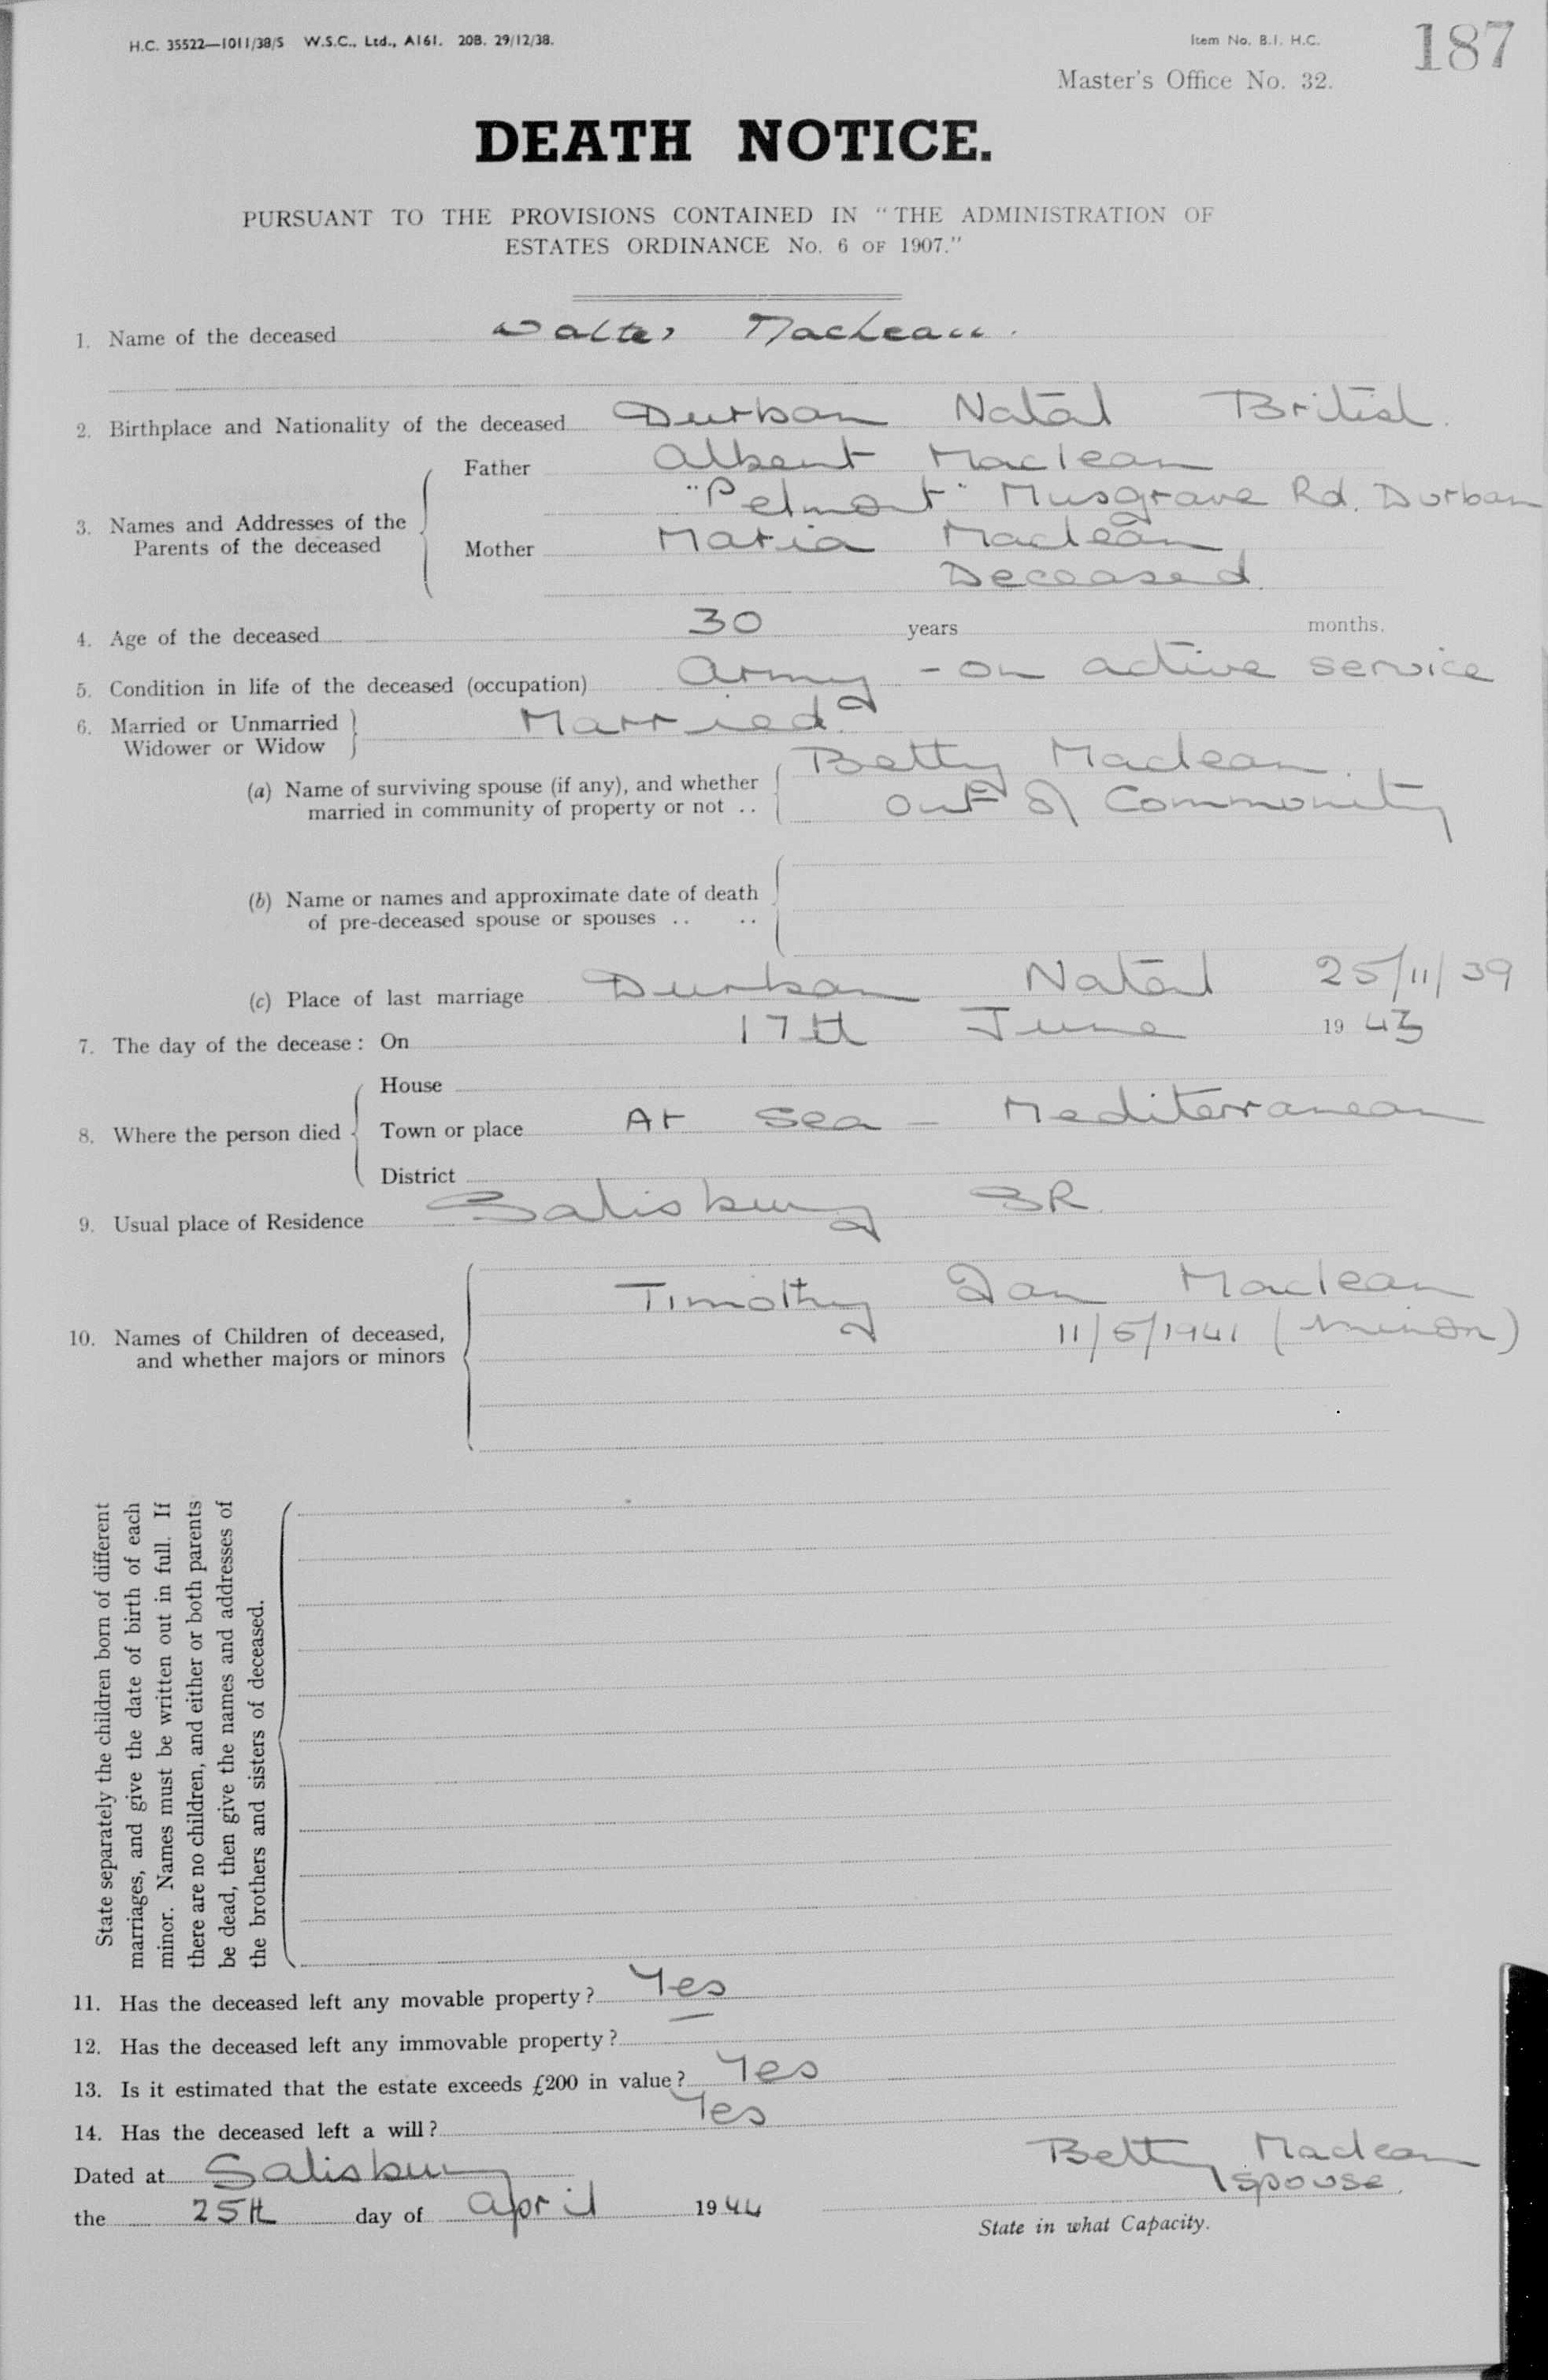 H.C. 35522—1011/38/S W.S.C., Ltd., A161. 20B. 29/12/38.
Item No. B.1. H.C.
187
Master's Office No. 32.
DEATH NOTICE.
PURSUANT TO THE PROVISIONS CONTAINED IN "THE ADMINISTRATION OF
ESTATES ORDINANCE No. 6 OF 1907."
1. Name of the deceased Walter Maclean.
2. Birthplace and Nationality of the deceased Durban Natal British.
3. Names and Addresses of the Parents of the deceased
Father Albert Maclean
"Pelmont" Musgrave Rd. Durban
Mother Maria Maclean
Deceased.
4. Age of the deceased 30 years months.
5. Condition in life of the deceased (occupation) Army - on active service
6. Married or Unmarried Married.
Widower or Widow
(a) Name of surviving spouse (if any), and whether Betty Maclean.
married in community of property or not .. out of Community
(b) Name or names and approximate date of death
of pre-deceased spouse or spouses .. ..
(c) Place of last marriage Durban Natal 25/11/39
7. The day of the decease: On 17th June 1943
8. Where the person died
House
Town or place At Sea - Mediterranean
District
9. Usual place of Residence Salisbury SR.
Timothy Ian Maclean
10. Names of Children of deceased, 11/5/1941 (minor)
and whether majors or minors
State separately the children born of different
marriages, and give the date of birth of each
minor. Names must be written out in full. If
there are no children, and either or both parents
be dead, then give the names and addresses of
the brothers and sisters of deceased.
11. Has the deceased left any movable property? Yes
12. Has the deceased left any immovable property? —
13. Is it estimated that the estate exceeds £200 in value? Yes
14. Has the deceased left a will? Yes
Betty Maclean
Dated at Salisbury
spouse.
the 25th day of April 1944
State in what Capacity.